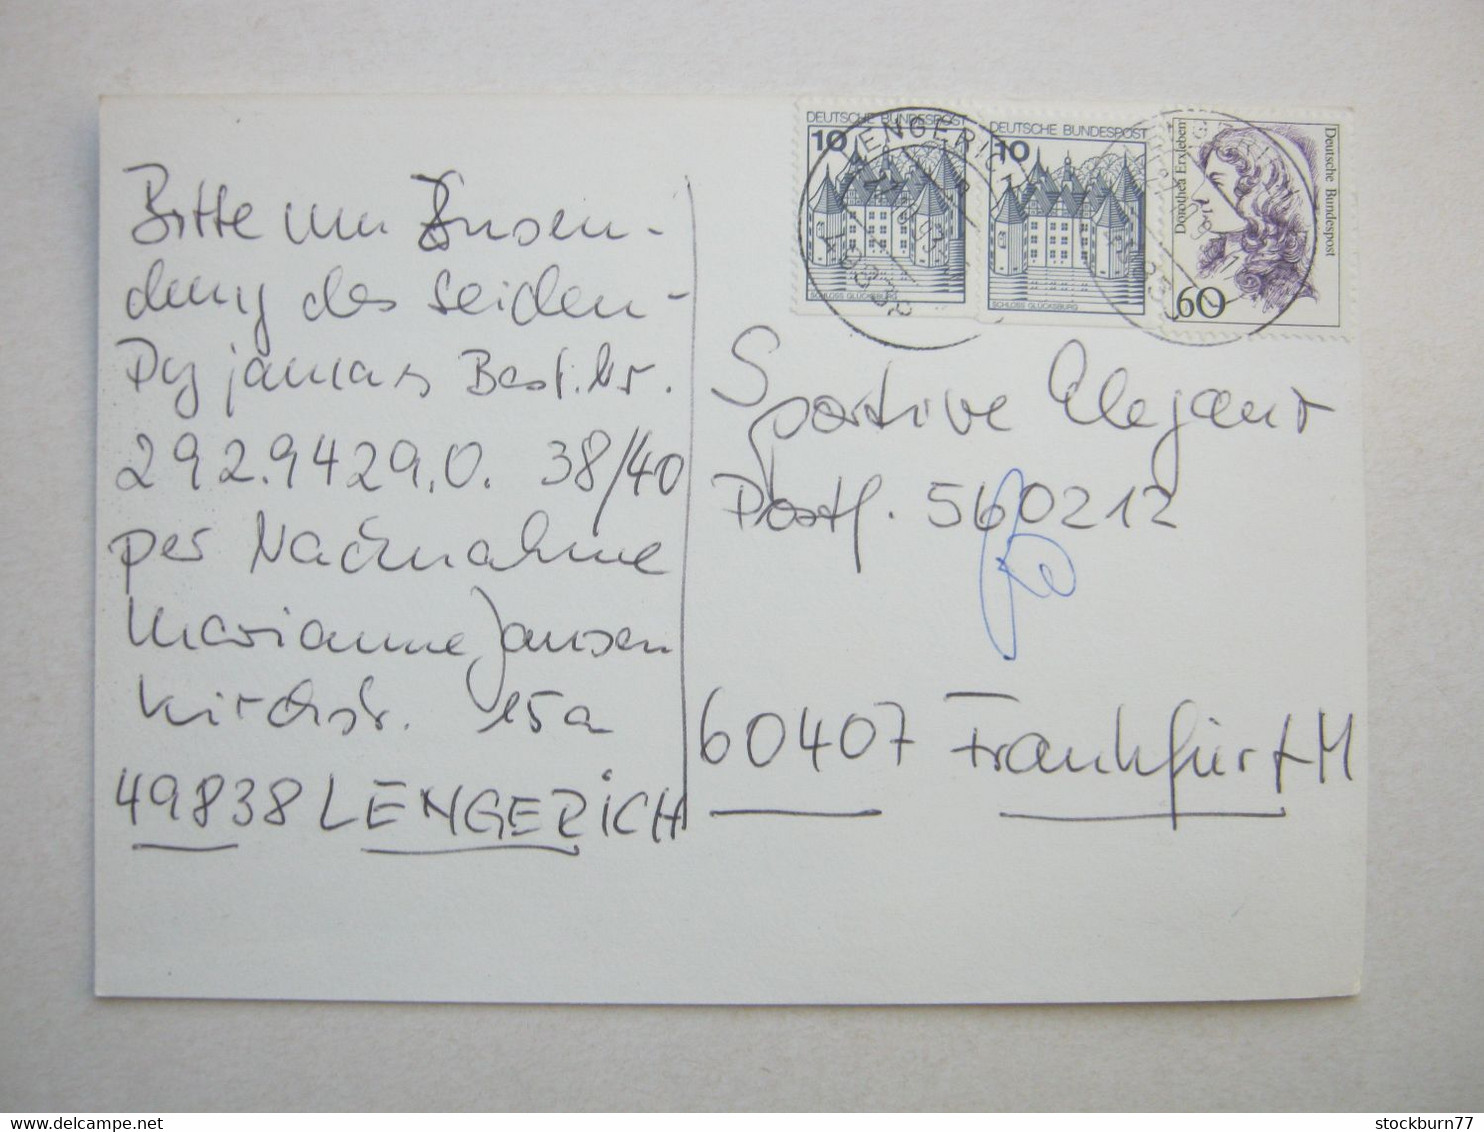 Bitte um Zusen-
dung des Seiden-
Pyjamas Best.Nr.
292.9429.0. 38/40
per Nachnahme
Marianne Jansen
Kirchstr. 15a
49838 LENGERICH
DEUTSCHE BUNDESPOST
10
SCHLOSS GLÜCKSBURG
DEUTSCHE BUNDESPOST
10
SCHLOSS GLÜCKSBURG
Deutsche Bundespost
Dorothea Erxleben
60
LENGERICH
49838
Sportive Eleganz
Postf. 560212
60407 Frankfurt M
delcampe.net
stockburn77